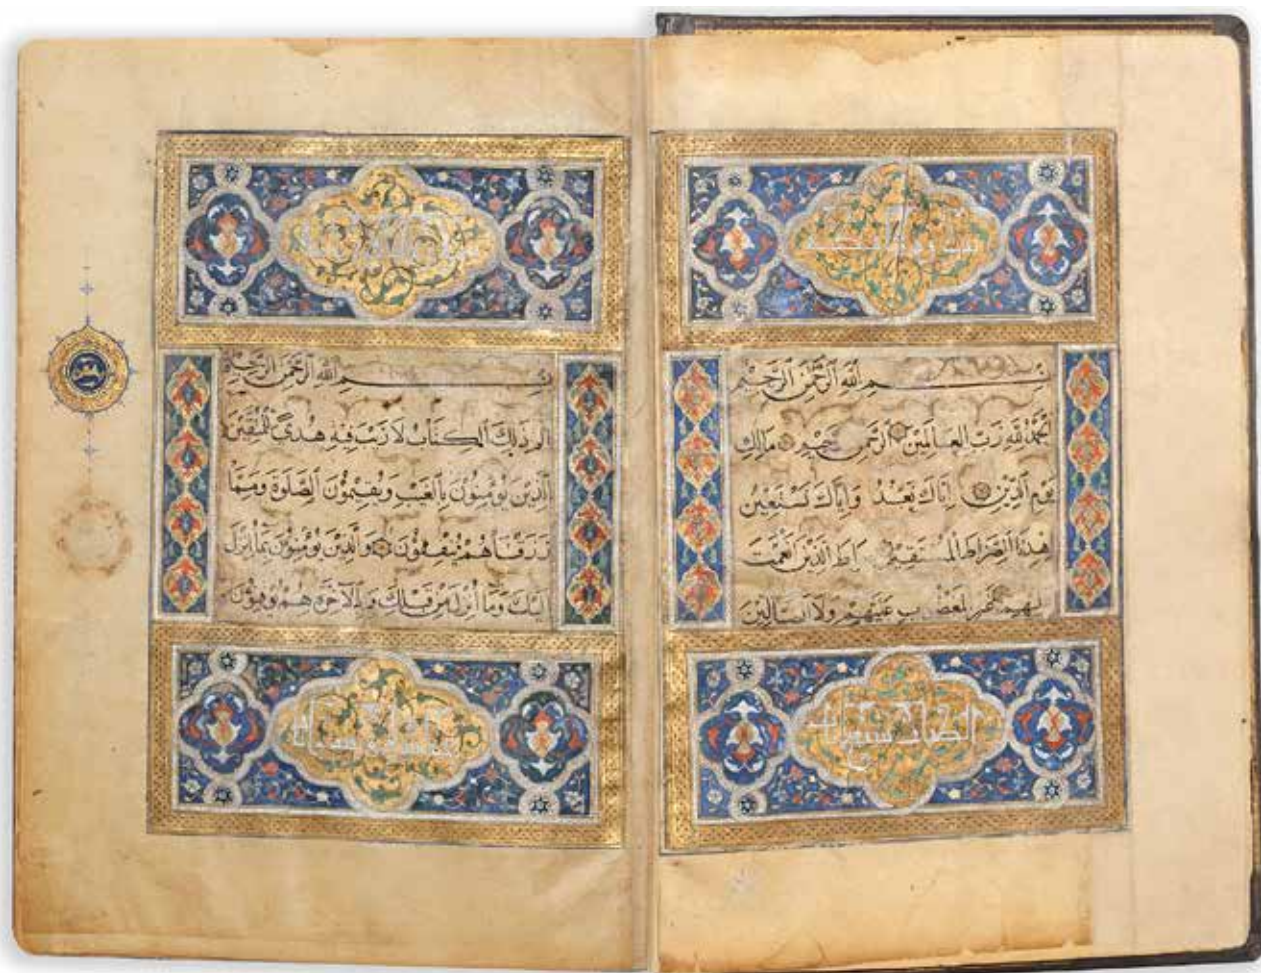 بِسْمِ ٱللَّهِ ٱلرَّحْمَنِ ٱلرَّحِيمِ
الْحَمْدُ لِلَّهِ رَبِّ الْعَالَمِينَ ٱلرَّحْمَنِ الرَّحِيمِ مَالِكِ
يَوْمِ ٱلدِّينِ إِيَّاكَ نَعْبُدُ وَإِيَّاكَ نَسْتَعِينُ
اهْدِنَا ٱلصِّرَاطَ الْمُسْتَقِيمَ صِرَاطَ الَّذِينَ أَنْعَمْتَ
عَلَيْهِمْ غَيْرِ الْمَغْضُوبِ عَلَيْهِمْ وَلَا الضَّالِّينَ
بِسْمِ ٱللَّهِ ٱلرَّحْمَنِ ٱلرَّحِيمِ
الم ذَلِكَ الْكِتَابُ لَا رَيْبَ فِيهِ هُدًى لِلْمُتَّقِينَ
ٱلَّذِينَ يُؤْمِنُونَ بِالْغَيْبِ وَيُقِيمُونَ ٱلصَّلَوةَ وَمِمَّا
رَزَقْنَاهُمْ يُنْفِقُونَ وَالَّذِينَ يُؤْمِنُونَ بِمَا أُنْزِلَ
إِلَيْكَ وَمَا أُنْزِلَ مِنْ قَبْلِكَ وَبِالْآخِرَةِ هُمْ يُوقِنُونَ